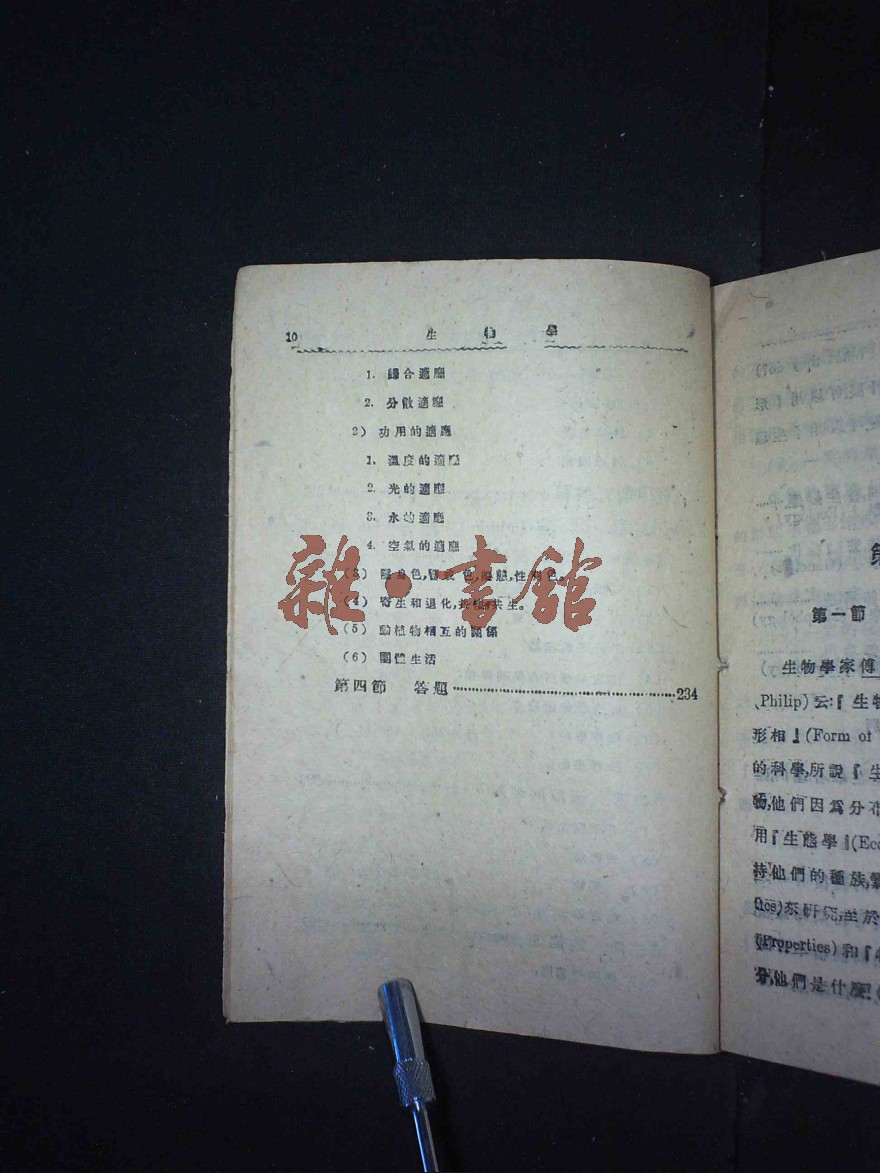 10 生物學
1. 綜合適應
2. 分散適應
2) 功用的適應
1. 溫度的適應
2. 光的適應
3. 水的適應
4. 空氣的適應
(3) 色,色,態,性色。
(4) 寄生和退化,共生。
(5) 動植物相互的關係
(6) 團體生活
第四節 答題 234
雜·書館
第
第一節
生物學家傅
Philip)云:『生物
形相』(Form of
的科學,所說『生
物,他們因爲分布
用『生態學』(Eco
持他們的種族,繁
tics)來研究,至於
(Properties)和『
分,他們是什麼?